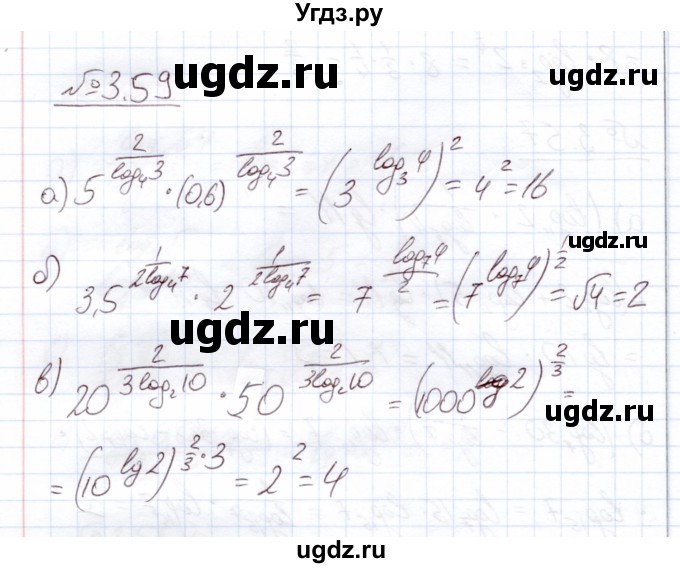 Угдз.ру
ugdz.ru ugdz.ru
№3.59
а) 5^(2/log₄3) · (0,6)^(2/log₄3) = (3^(log₃4))² = 4² = 16
ugdz.ru
б) 3,5^(1/(2log₄7)) · 2^(1/(2log₄7)) = 7^(log₇4/2) = (7^(log₇4))^(1/2) = √4 = 2
ugdz.ru
в) 20^(2/(3log₂10)) · 50^(2/(3log₂10)) = (1000^(lg2))^(2/3) =
ugdz.ru
= (10^(lg2))^(2/3·3) = 2² = 4
ugdz.ru ugdz.ru
ugdz.ru